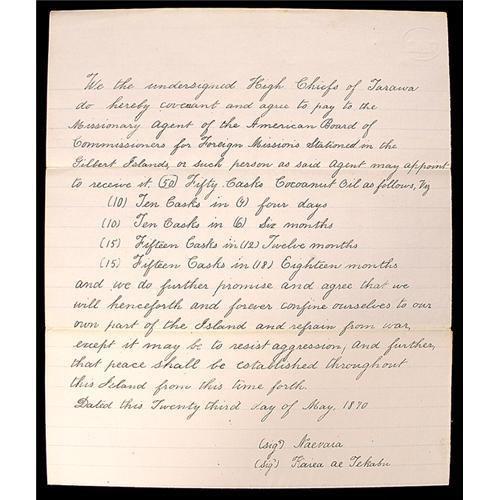 We the undersigned High Chiefs of Tarawa
do hereby covenant and agree to pay to the
Missionary Agent of the American Board of
Commissioners for Foreign Missions Stationed in the
Gilbert Islands or such person as said Agent may appoint
to receive it. (50) Fifty Casks Cocoanut Oil as follows, Viz
(10) Ten Casks in (4) four days
(10) Ten Casks in (6) Six months
(15) Fifteen Casks in (12) Twelve months
(15) Fifteen Casks in (18) Eighteen months
and we do further promise and agree that we
will henceforth and forever confine ourselves to our
own part of the Island and refrain from war,
except it may be to resist aggression, and further,
that peace shall be established throughout
this Island from this time forth.
Dated this Twenty third day of May, 1870
(sigd) Naevaia
(sigd) Karea ae Tekabu